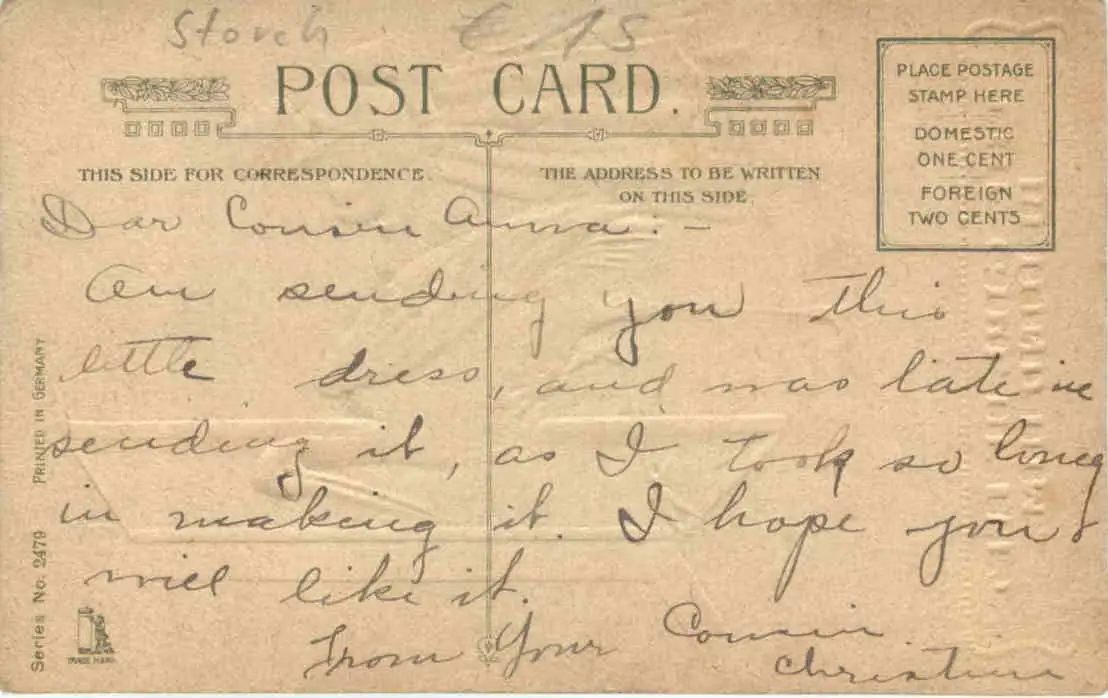 Storch € 15
POST CARD.
PLACE POSTAGE
STAMP HERE
DOMESTIC
ONE CENT
FOREIGN
TWO CENTS
THIS SIDE FOR CORRESPONDENCE.
THE ADDRESS TO BE WRITTEN
ON THIS SIDE.
Dear Cousin Anna: -
Am sending you this
little dress, and was late in
sending it, as I took so long
in making it. I hope you
will like it.
From Your Cousin
Christina
Series No. 2479 PRINTED IN GERMANY
TRADE MARK